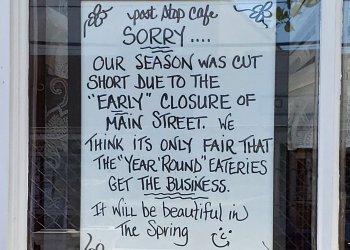 post Stop Cafe
SORRY....
OUR SEASON WAS CUT
SHORT DUE TO THE
"EARLY" CLOSURE OF
MAIN STREET. WE
THINK ITS ONLY FAIR THAT
THE "YEAR 'ROUND" EATERIES
GET THE BUSINESS.
It will be beautiful in
The Spring